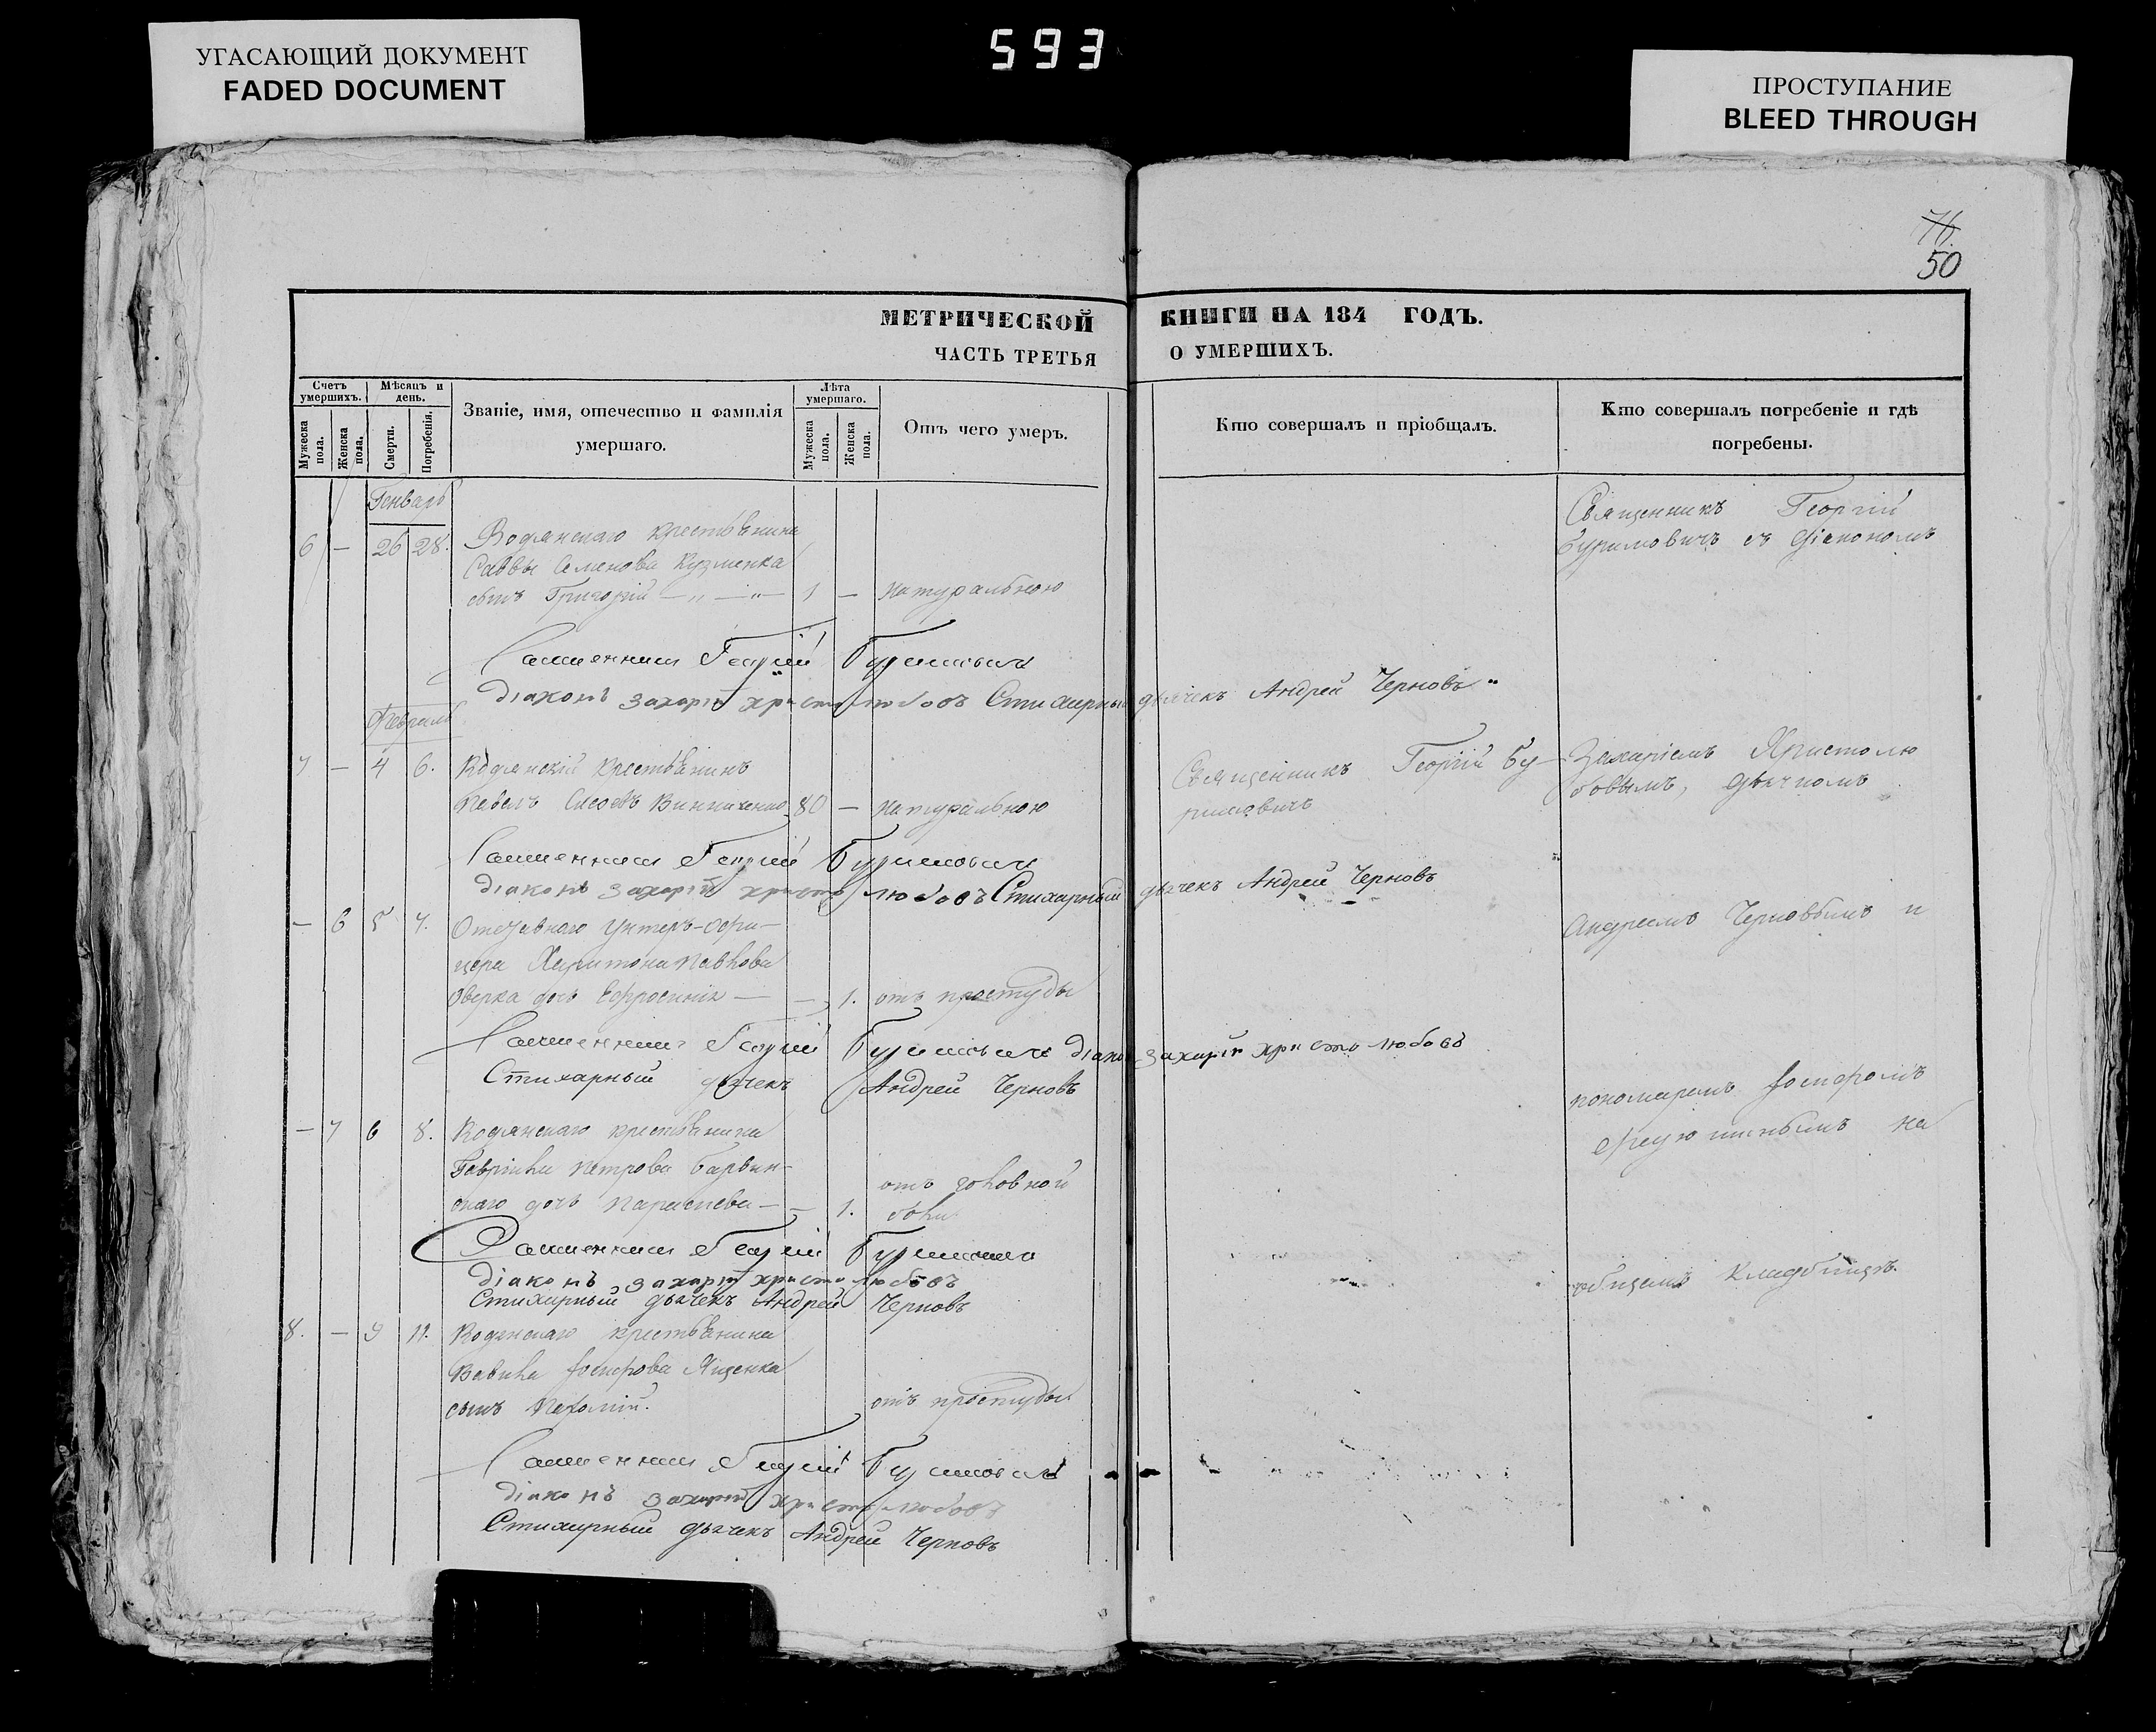 УГАСАЮЩИЙ ДОКУМЕНТ
FADED DOCUMENT
593
ПРОСТУПАНИЕ
BLEED THROUGH
76.
50
МЕТРИЧЕСКОЙ КНИГИ НА 184 ГОДЪ.
ЧАСТЬ ТРЕТЬЯ О УМЕРШИХЪ.
Счетъ умершихъ.
Мужеска пола.
Женска пола.
Мѣсяцъ и день.
Смерти.
Погребенія.
Званіе, имя, отечество и фамилія умершаго.
Лѣта умершаго.
Мужеска пола.
Женска пола.
Отъ чего умеръ.
Кто совершалъ и пріобщалъ.
Кто совершалъ погребеніе и гдѣ погребены.
Генварь
6 — 26 28. Водянскаго крестьянина
Саввы Семенова Кузменка
сынъ Григорій — „ — „ — 1 — натуральною
Священникъ Георгій
Буримовичъ съ діакономъ
Священникъ Георгій Буримовичъ
діаконъ захарій христолюбовъ Стихарный дьячекъ Андрей Черновъ
Февраль
7 — 4 6. Водянскій крестьянинъ
Павелъ Винниченко 80 — натуральною
Священникъ Георгій Бу-
римовичъ
Захаріемъ Христолю
бовымъ, дьячкомъ
Священникъ Георгій Буримовичъ
діаконъ захарій христолюбовъ Стихарный дьячекъ Андрей Черновъ
— 6 5 7. Отставнаго Унтеръ-Офи-
цера Харитона Павлова
дочь Ефросинія — — 1. отъ простуды
Андреемъ Черновымъ и
Священникъ Георгій Буримовичъ діаконъ захарій христолюбовъ
Стихарный дьячекъ Андрей Черновъ
пономаремъ
на
— 7 6 8. Водянскаго крестьянина
Гавріила Петрова Барвин-
скаго дочь Параскева — — 1. отъ головной
боли
Священникъ Георгій Буримовичъ
діаконъ захарій христолюбовъ
Стихарный дьячекъ Андрей Черновъ
общемъ кладбищѣ.
8. — 9 11. Водянскаго крестьянина
Вавила Ященка
сынъ Пахомій. отъ простуды
Священникъ Георгій Буримовичъ
діаконъ захарій христолюбовъ
Стихарный дьячекъ Андрей Черновъ